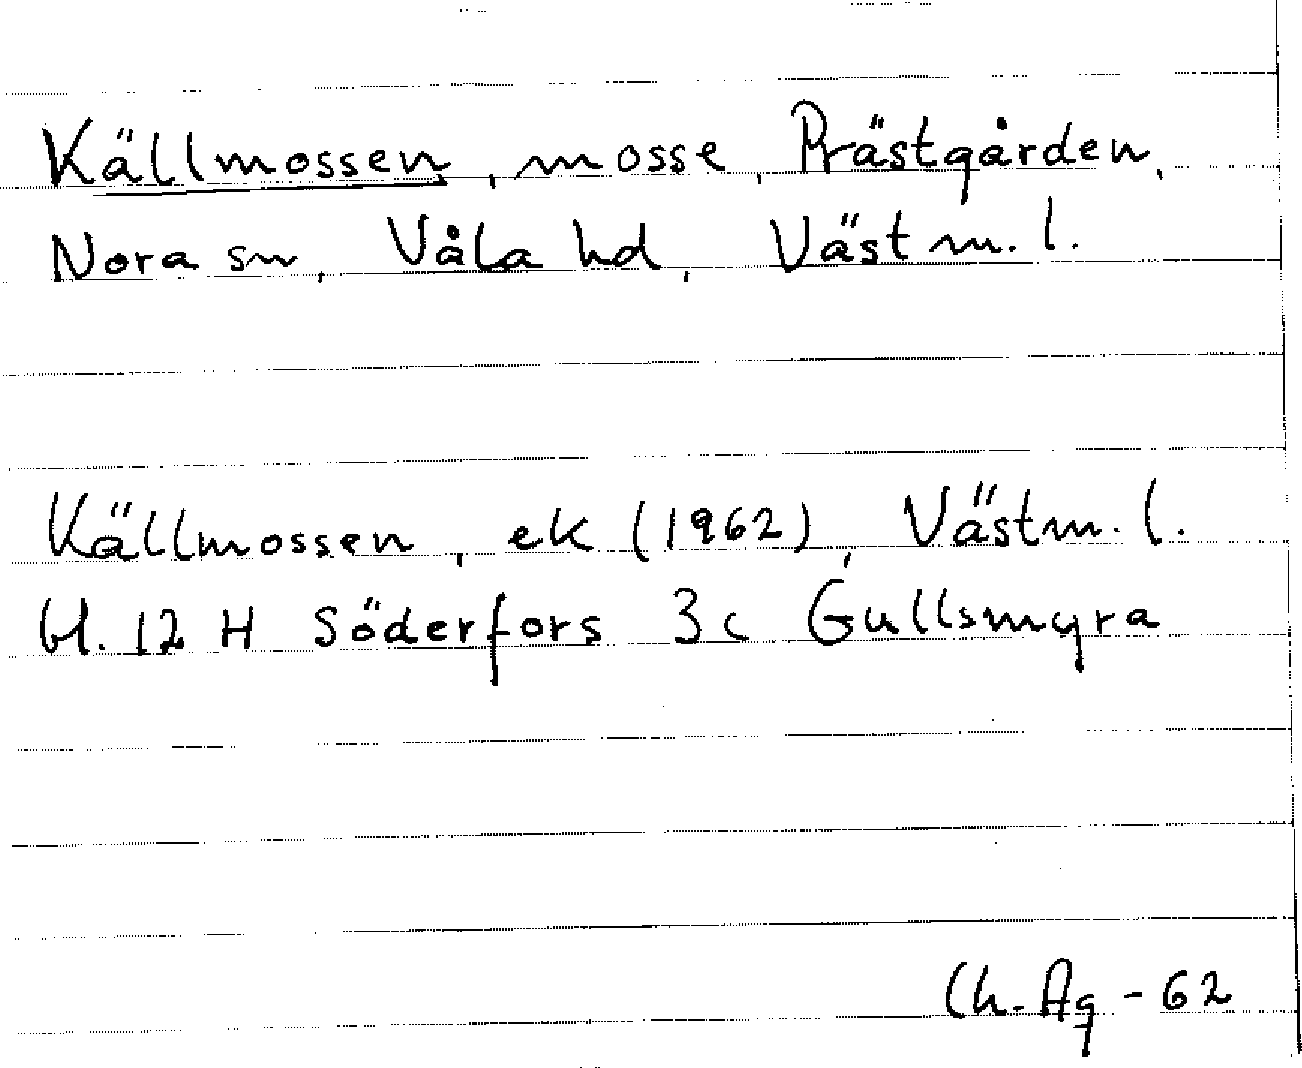 Källmossen, mosse, Prästgården,
Nora sn, Våla hd, Västm. l.
Källmossen, ek (1962), Västm. l.
bl. 12 H Söderfors 3c Gullsmyra
Ch. Ag - 62